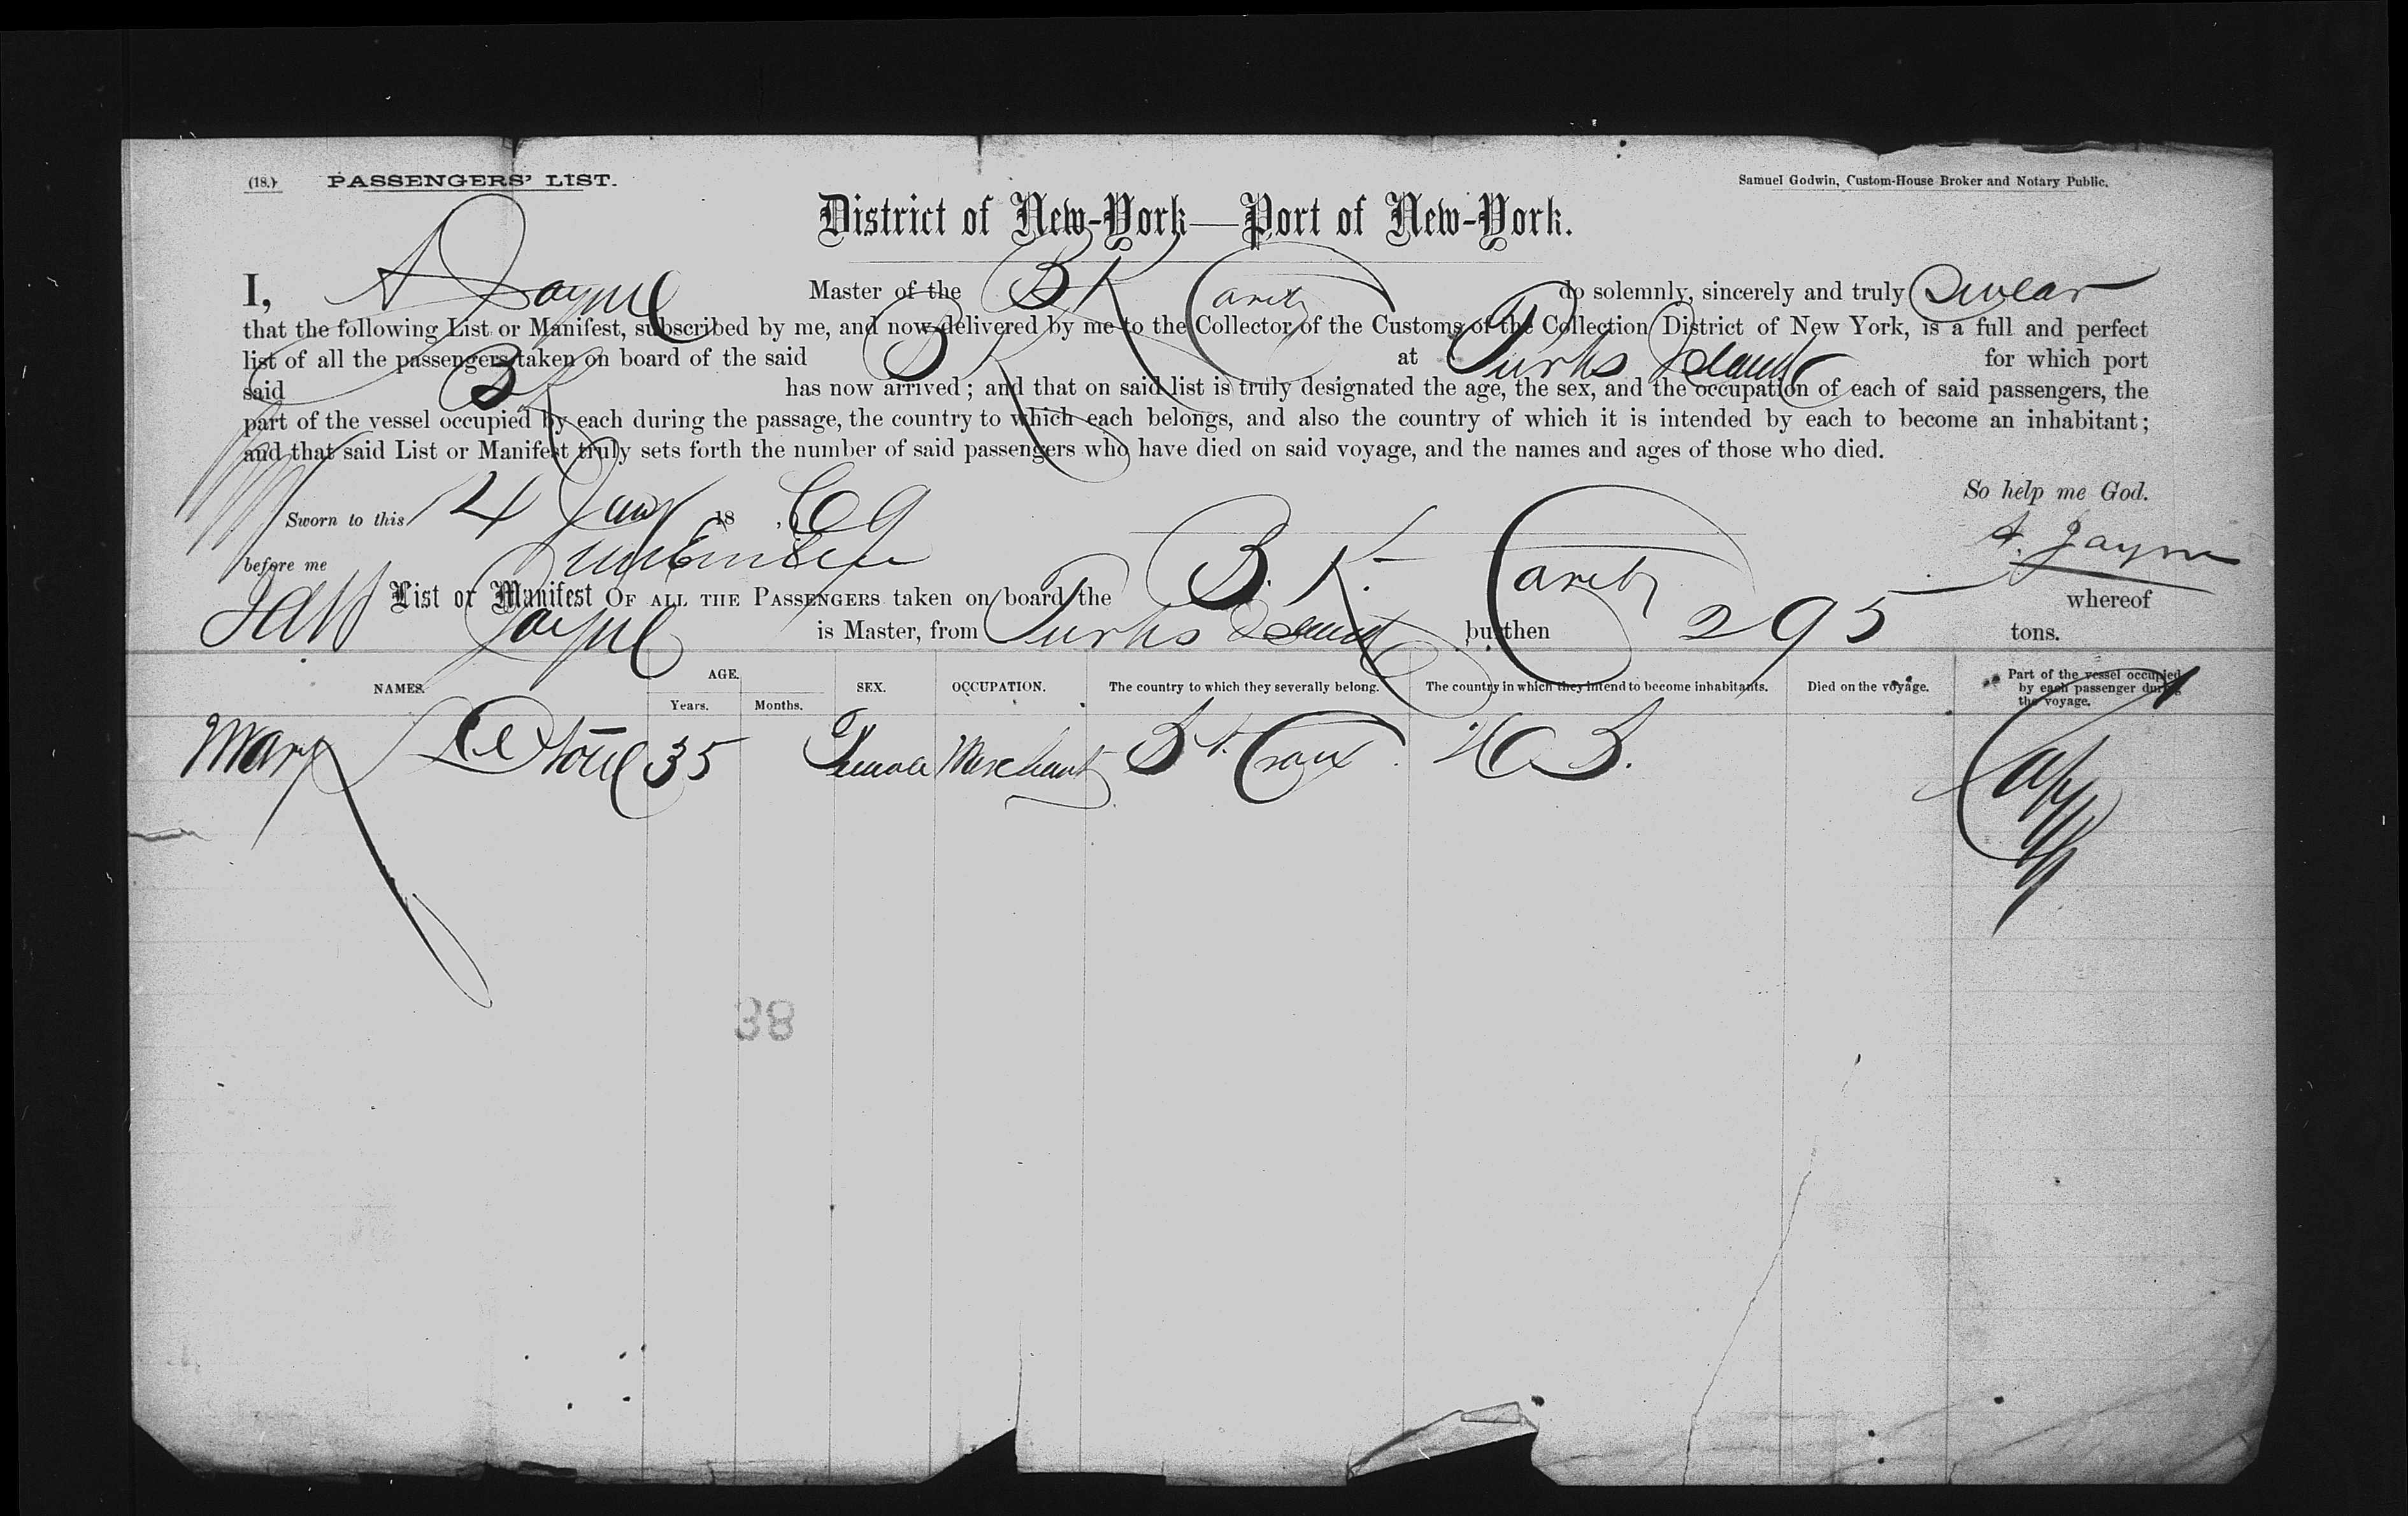 (18.) PASSENGERS' LIST. Samuel Godwin, Custom-House Broker and Notary Public.
District of New-York—Port of New-York.
I, A Jayne Master of the B K Carib do solemnly, sincerely and truly Swear
that the following List or Manifest, subscribed by me, and now delivered by me to the Collector of the Customs of the Collection District of New York, is a full and perfect
list of all the passengers taken on board of the said B K at Turks Island for which port
said B K has now arrived; and that on said list is truly designated the age, the sex, and the occupation of each of said passengers, the
part of the vessel occupied by each during the passage, the country to which each belongs, and also the country of which it is intended by each to become an inhabitant;
and that said List or Manifest truly sets forth the number of said passengers who have died on said voyage, and the names and ages of those who died.
So help me God.
Sworn to this 14 Jany 18 69
A. Jayne
before me
List or Manifest OF ALL THE PASSENGERS taken on board the B. K. Carib whereof
Jayne is Master, from Turks Island burthen 295 tons.
NAMES. AGE. Years. Months. SEX. OCCUPATION. The country to which they severally belong. The country in which they intend to become inhabitants. Died on the voyage. Part of the vessel occupied by each passenger during the voyage.
Mary 35 Female Merchant St. Croix
38